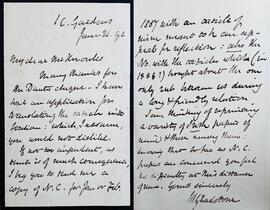 1 C. Gardens
June 21. 92
My dear Mr Knowles
Many thanks for
the Dante cheque. I have
had an application for
translating the article into
Italian: which, I assume,
you would not dislike.
If not too impudent, as
time is of much consequence,
I beg you to send me a
copy of N. C. for Jan or Feb.
1887 with an article of
mine meant to be an ap-
peal for reflection: also the
No. with the article which (in
1886?) brought about the one
only rub between us during
a long & friendly relation.
I am thinking of reprinting
a variety of Irish papers of
mine & these among them:
knowing that so far as N. C.
papers are concerned you feel
no objection at this distance
of time. Yours sincerely
WGladstone